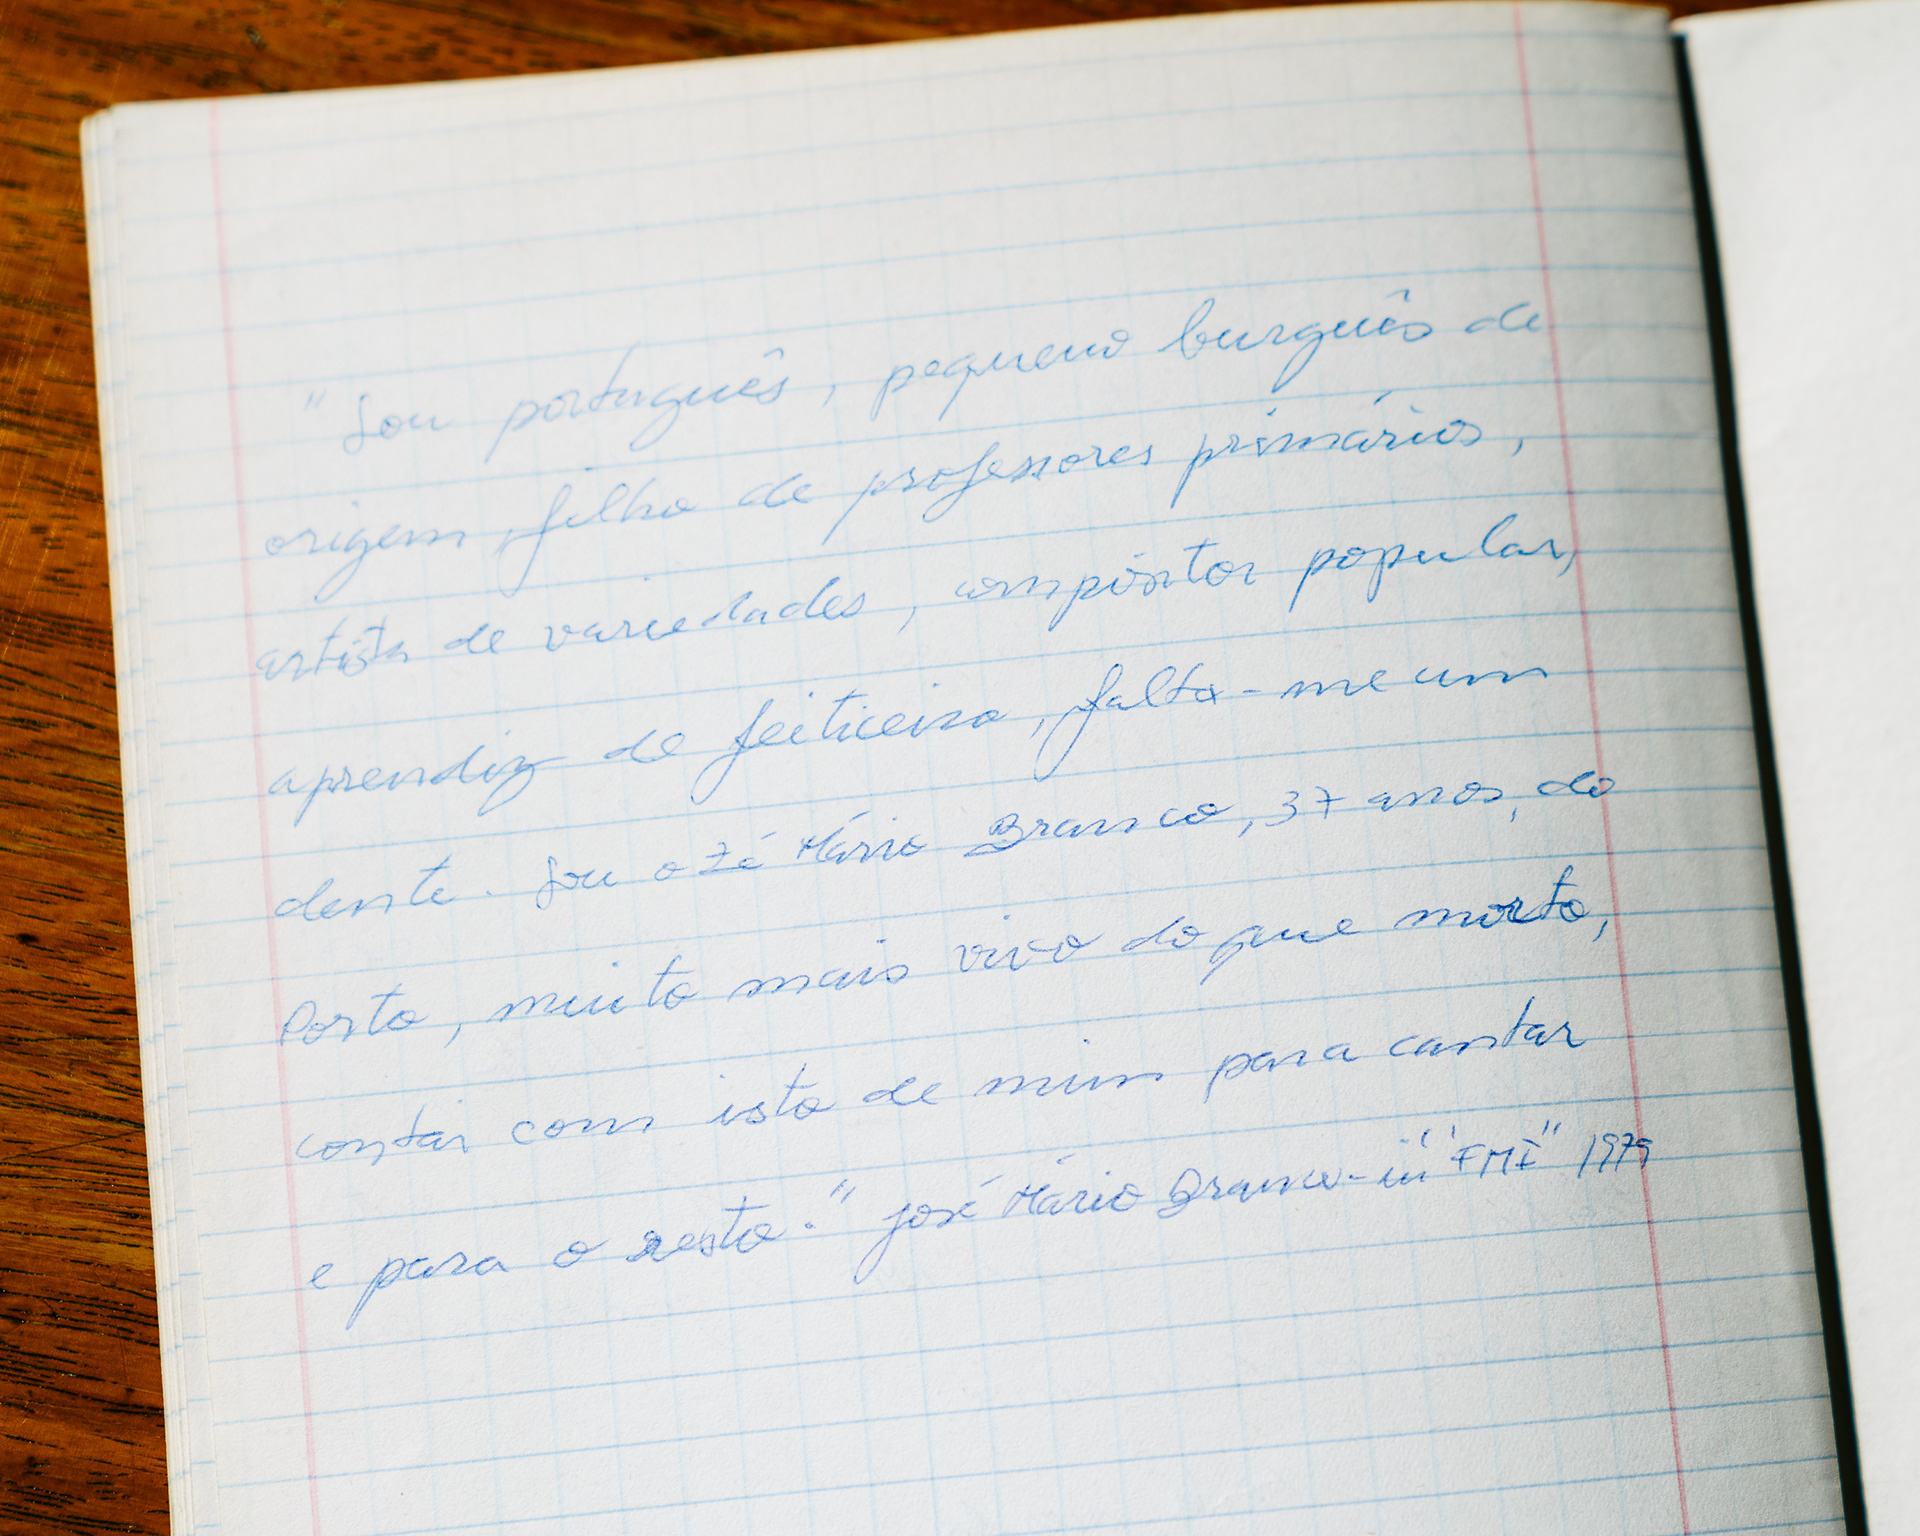 "Sou português, pequeno burguês de
origem, filho de professores primários,
artista de variedades, compositor popular,
aprendiz de feiticeiro, falta-me um
dente. Sou o Zé Mário Branco, 37 anos, do
Porto, muito mais vivo do que morto,
contai com isto de mim para cantar
e para o resto." José Mário Branco - in "FMI" 1979